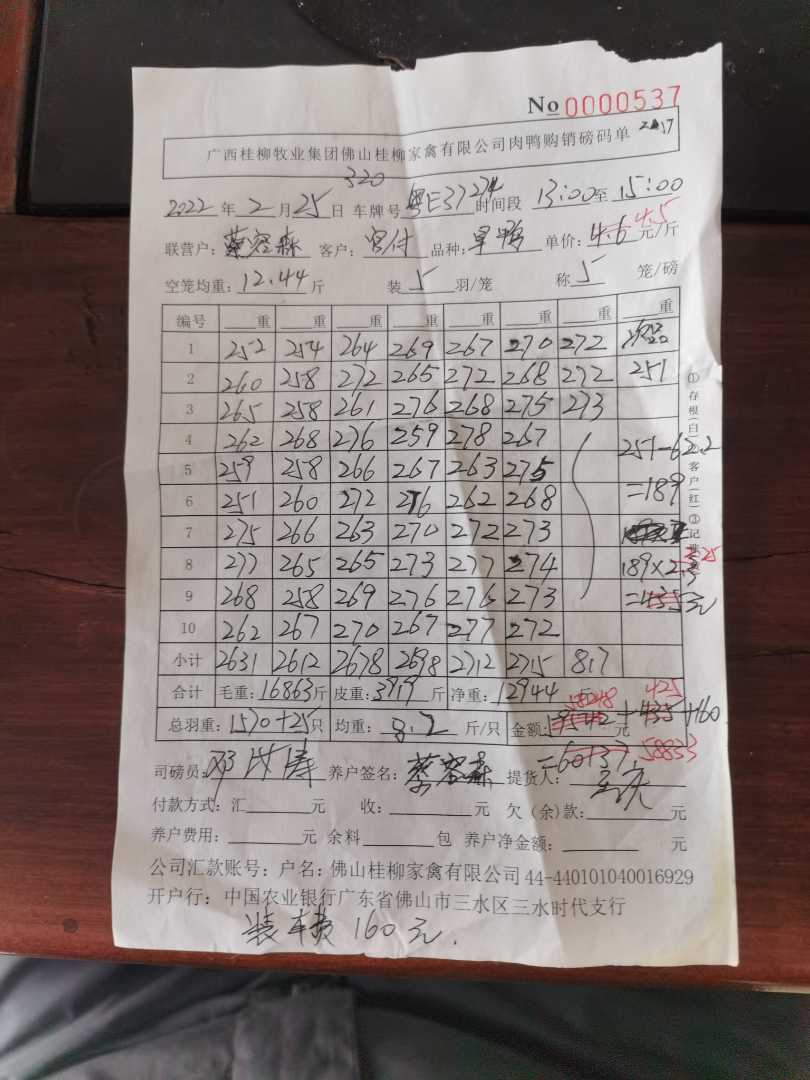 No 0000537
广西桂柳牧业集团佛山桂柳家禽有限公司肉鸭购销磅码单
320
2022 年 2 月 25 日 车牌号 粤E37274 时间段 13:00 至 15:00
4.5
联营户: 蔡容森 客户: 宫付 品种: 旱鸭 单价: 4.6 元/斤
空笼均重: 12.44 斤 装 5 羽/笼 称 5 笼/磅
编号 重 重 重 重 重 重 重 重
1 252 254 264 269 267 270 272
2 260 258 272 265 272 268 272 251
3 265 258 261 276 268 275 273
4 262 268 276 259 278 267 251-62.2
5 259 258 266 267 263 275 =189
6 251 260 272 276 262 268
7 275 266 263 270 272 273
8 277 265 265 273 277 274 189×2.3 2.25
9 268 258 269 276 276 273 =435元
10 262 267 270 267 277 272
小计 2631 2612 2678 2698 2712 2715 817
合计 毛重: 16863 斤 皮重: 3919 斤 净重: 12944 斤
58248 425
总羽重: 1570+25 只 均重: 8.2 斤/只 金额: 59542+435+160 元
=60137 58833
司磅员: 养户签名: 蔡容森 提货人:
付款方式: 汇 元 收: 元 欠(余)款: 元
养户费用: 元 余料 包 养户净金额: 元
公司汇款账号: 户名: 佛山桂柳家禽有限公司 44-440101040016929
开户行: 中国农业银行广东省佛山市三水区三水时代支行
装车费 160元.
①存根(白) 客户(红)③记